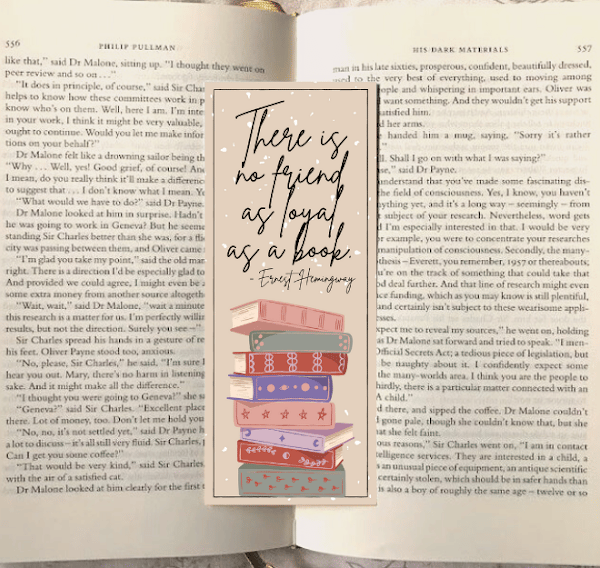 556
PHILIP PULLMAN
like that,” said Dr Malone, sitting up. “I thought they went on
peer review and so on . . .”
“It does in principle, of course,” said Sir
helps to know how these committees work in
know who’s on them. Well, here I am. I’m
in your work, I think it might be very valuable,
ought to continue. Would you let me make
tions on your behalf?”
Dr Malone felt like a drowning sailor being
“Why . . . Well, yes! Good grief, of course! And
I mean, do you really think it’ll make a
to suggest that . . . I don’t know what I mean.
“What would we have to do?” said Dr Payne.
Dr Malone looked at him in surprise. Hadn’t
he was going to work in Geneva? But he
standing Sir Charles better than she was, for a
city was passing between them, and Oliver came
“I’m glad you take my point,” said the old
right. There is a direction I’d be especially glad to
And provided we could agree, I might even be
some extra money from another source altogether
“Wait, wait,” said Dr Malone, “wait a minute
this research is a matter for us. I’m perfectly
results, but not the direction. Surely you see –”
Sir Charles spread his hands in a gesture of
his feet. Oliver Payne stood too, anxious.
“No, please, Sir Charles,” he said, “I’m sure
hear you out. Mary, there’s no harm in listening
sake. And it might make all the difference.”
“I thought you were going to Geneva?” she
“Geneva?” said Sir Charles. “Excellent place
there. Lot of money, too. Don’t let me hold you
“No, no, it’s not settled yet,” said Dr Payne
a lot to discuss – it’s all still very fluid. Sir Charles,
Can I get you some coffee?”
“That would be very kind,” said Sir Charles
with the air of a satisfied cat.
Dr Malone looked at him clearly for the first
There is
no friend
as loyal
as a book.
- Ernest Hemingway
HIS DARK MATERIALS
557
man in his late sixties, prosperous, confident, beautifully dressed,
used to the very best of everything, used to moving among
and whispering in important ears. Oliver was
want something. And they wouldn’t get his support
satisfied him.
her arms.
handed him a mug, saying, “Sorry it’s rather
Shall I go on with what I was saying?”
said Dr Payne.
understand that you’ve made some fascinating dis-
the field of consciousness. Yes, I know, you haven’t
anything yet, and it’s a long way – seemingly – from
subject of your research. Nevertheless, word gets
I’m especially interested in that. I would be very
example, you were to concentrate your researches
manipulation of consciousness. Secondly, the many-
– Everett, you remember, 1957 or thereabouts;
you’re on the track of something that could take that
deal further. And that line of research might even
funding, which as you may know is still plentiful,
certainly isn’t subject to these wearisome appli-
expect me to reveal my sources,” he went on, holding
as Dr Malone sat forward and tried to speak. “I men-
Official Secrets Act; a tedious piece of legislation, but
be naughty about it. I confidently expect some
the many-worlds area. I think you are the people to
there is a particular matter connected with an
A child.”
there, and sipped the coffee. Dr Malone couldn’t
gone pale, though she couldn’t know that, but she
that she felt faint.
reasons,” Sir Charles went on, “I am in contact
intelligence services. They are interested in a child, a
an unusual piece of equipment, an antique scientific
certainly stolen, which should be in safer hands than
is also a boy of roughly the same age – twelve or so